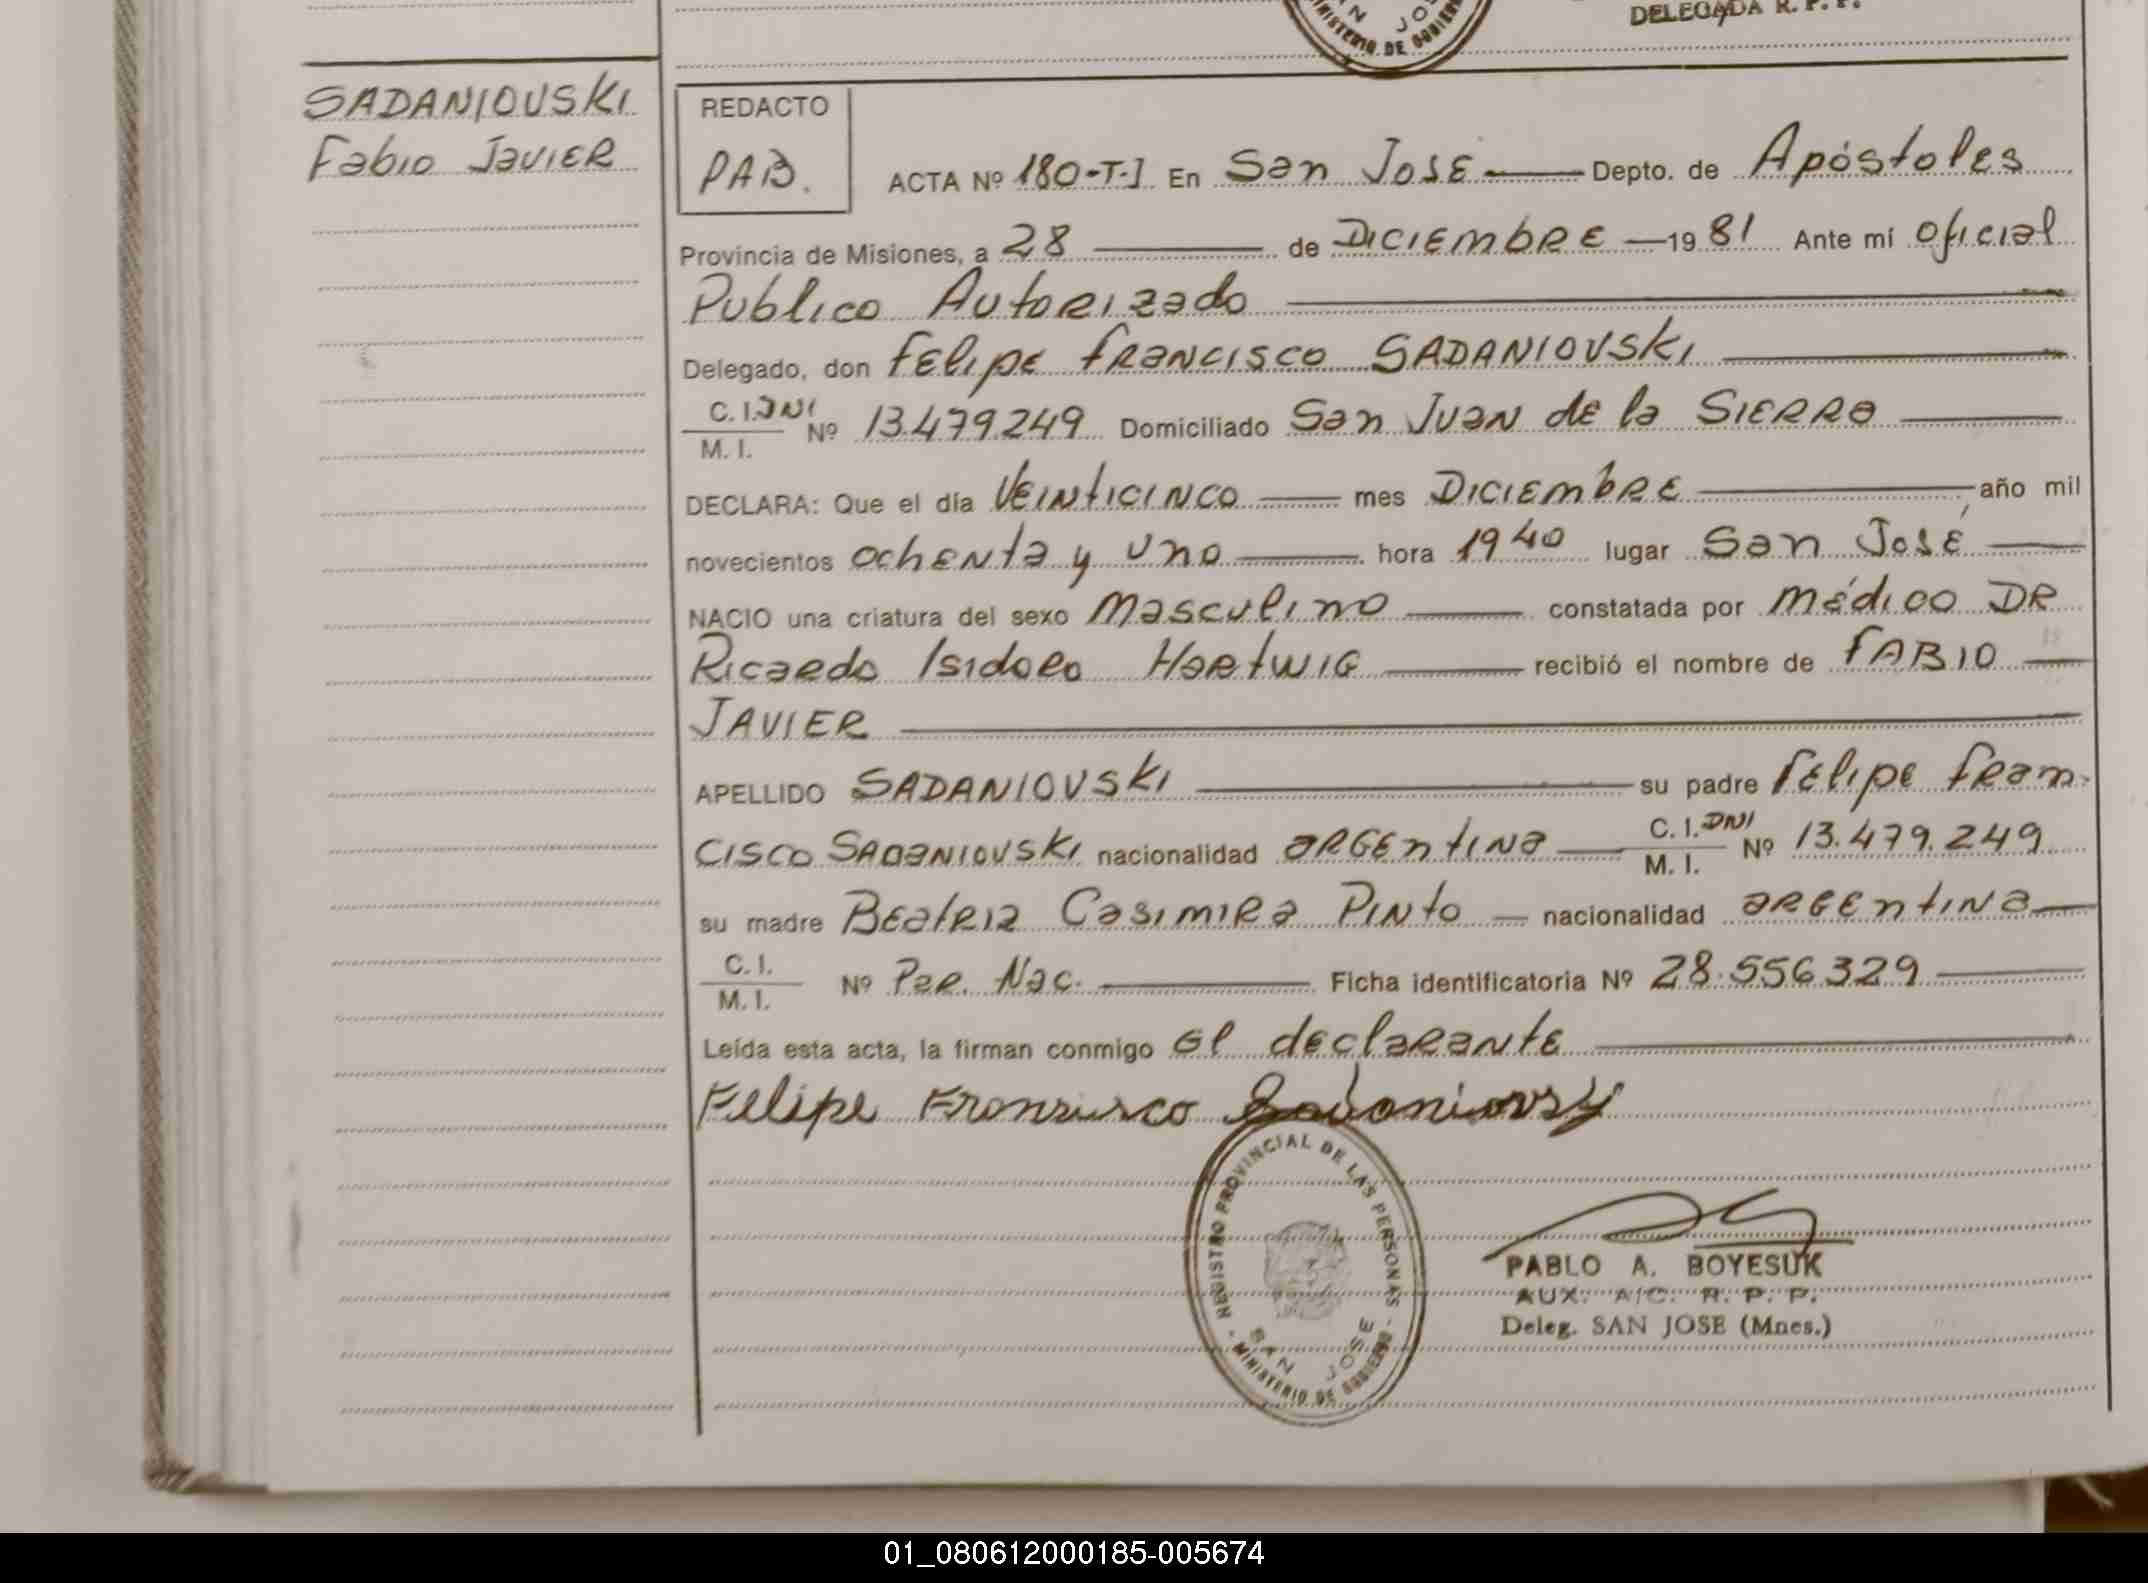 DELEGADA R. P. P.
SAN JOSE
MINISTERIO DE GOBIERNO
SADANIOUSKI
Fabio JavIER
REDACTO
PAB.
ACTA Nº 180-T-I En San JosE Depto. de Apóstoles
Provincia de Misiones, a 28 de DICIEMbRE 1981 Ante mí oficial
Publico AutoRizado
Delegado, don FElipE FRancisco SADANIOVSKI
C. I. DNI
M. I.
Nº 13.479.249 Domiciliado San Juan de la SIERRa
DECLARA: Que el día VEINticINco mes DICIEMbRE año mil
novecientos ochENta y uno hora 19 40 lugar San José
NACIO una criatura del sexo masculino constatada por médico DR
Ricardo Isidoro HartwIG recibió el nombre de FABIO
JAVIER
APELLIDO SADANIOVSKI su padre FElipE Fran-
CISCO SADaNIOVSKI nacionalidad aRGEntina C. I. DNI
M. I.
Nº 13.479.249
su madre BEatRIz CasimiRa PINto nacionalidad aRGEntina
C. I.
M. I.
Nº PaR. Nac. Ficha identificatoria Nº 28.556.329
Leída esta acta, la firman conmigo El dEclaRantE
Felipe Francisco Sadaniovsky
REGISTRO PROVINCIAL DE LAS PERSONAS
SAN JOSE
- MINISTERIO DE GOBIERNO -
PABLO A. BOYESUK
AUX. A/C. R. P. P.
Deleg. SAN JOSE (Mnes.)
01_080612000185-005674